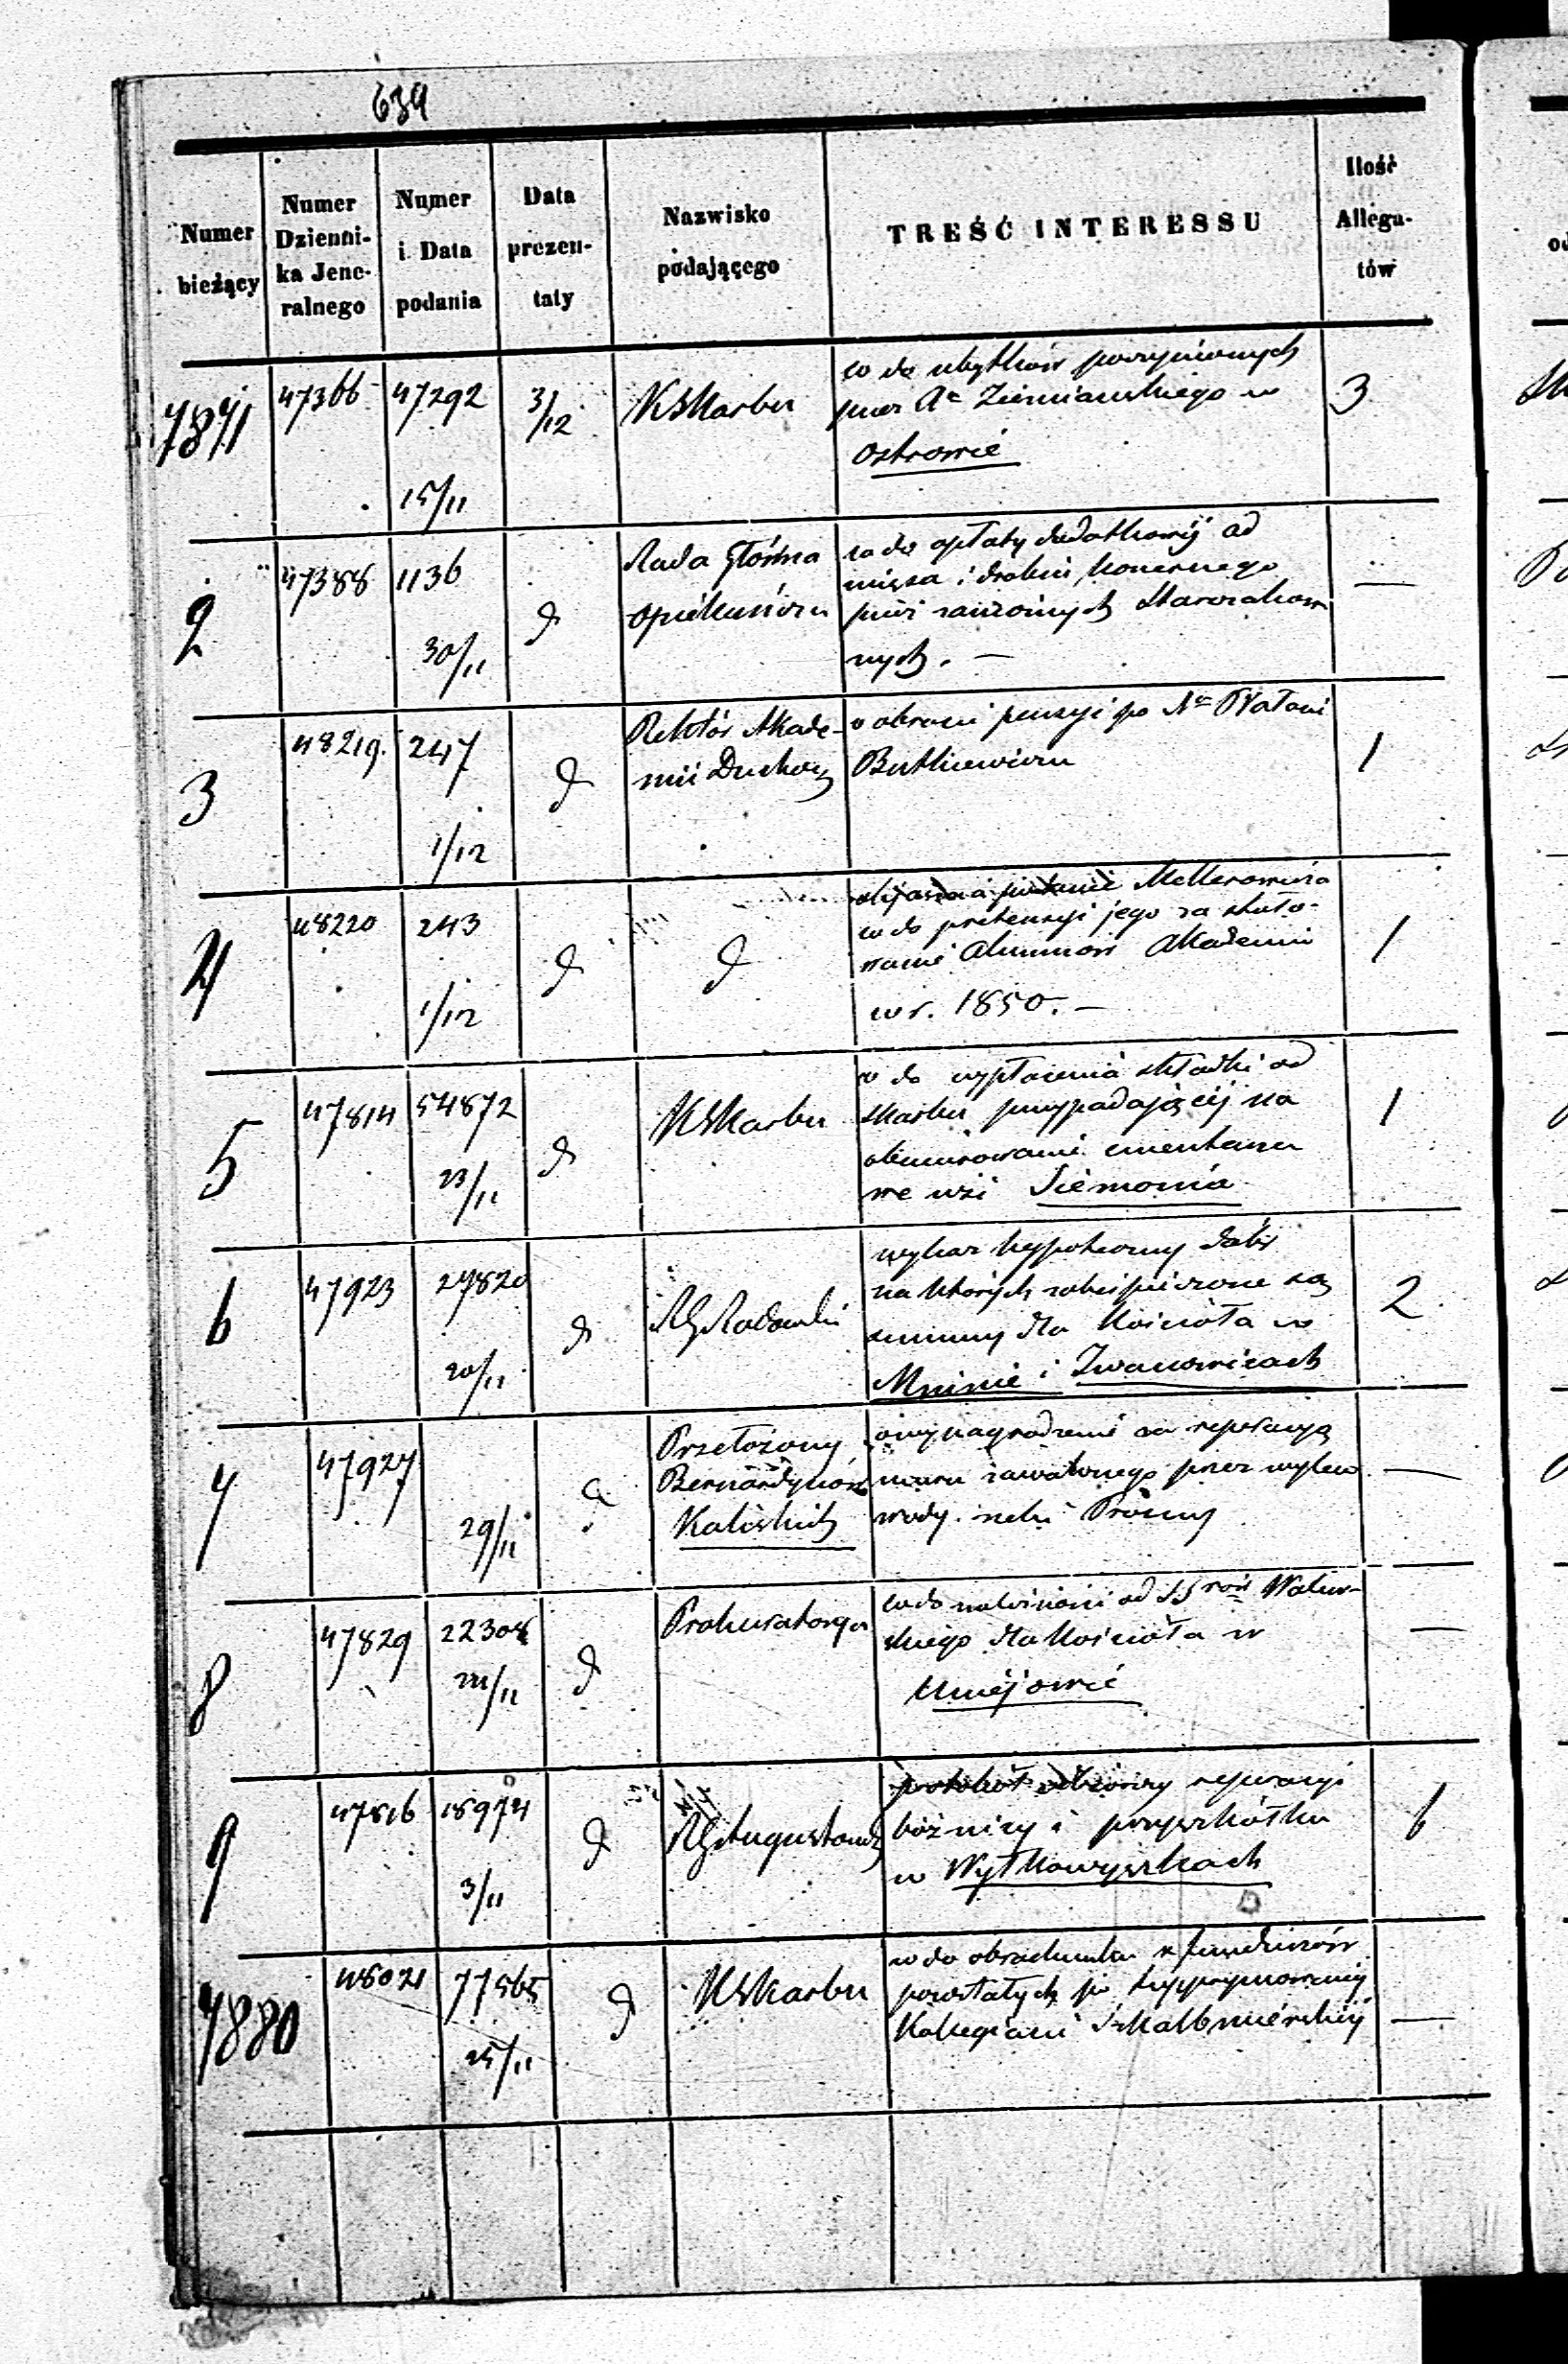 639
Numer bieżący
Numer Dzienni-
ka Jene-
ralnego
Numer i Data podania
Data prezen-
taty
Nazwisko podającego
TREŚĆ INTERESSU
Ilość Allega-
tów
7871
47366
47292
15/11
3/12
KSkarbu
co do ubytków poczynionych
przez Xa Ziemiańskiego w
Ostrowie
3
2
47388
1136
30/11
d
Rada Główna
Opiekuńcza
co do opłaty dodatkowej od
mięsa i drobiu koszernego
przez Starozakon
nych. —
—
3
48219.
247
1/12
d
Rektór Akade-
mii Duchoy
o obrocie pensyi po Xu
Butkiewiczu
1
4
48220
243
1/12
d
d
objaśnia podanie Mellerowicza
co do pretensyi jego za stoło-
wanie Alumnów Akademii
w r. 1850. —
1
5
47814
54872
23/11
d
KSkarbu
co do wypłacenia składki od
skarbu przypadającéj na
obmurowanie cmentarza
we wsi Siemonia
1
6
47923
27820
20/11
d
RG Radomski
wykaz hypoteczny dóbr
na których zabezpieczone są
summy dla Kościoła w
Mninie i Iwanowicach
2
7
47927
29/11
d
Przełożony
Bernardynów
Kaliskich
o wynagrodzenie za reperacyą
muru zawalonego przez wylew
wody rzeki Prosny
—
8
47829
22308
22/11
d
Prokuratorya
co do należności od SSrów Walew-
skiego dla Kościoła w
Umiejowie
—
9
47816
18974
3/11
d
RG Augustows
protokół odbiorczy reperacyi
bóżnicy i przyszkółku
w Wyłkowyszkach
6
7880
48021
77565
25/11
d
KSkarbu
co do obrachunku z funduszów
powstałych po supprymowanéj
Kollegiacie Szkalbmiérskiéj
—